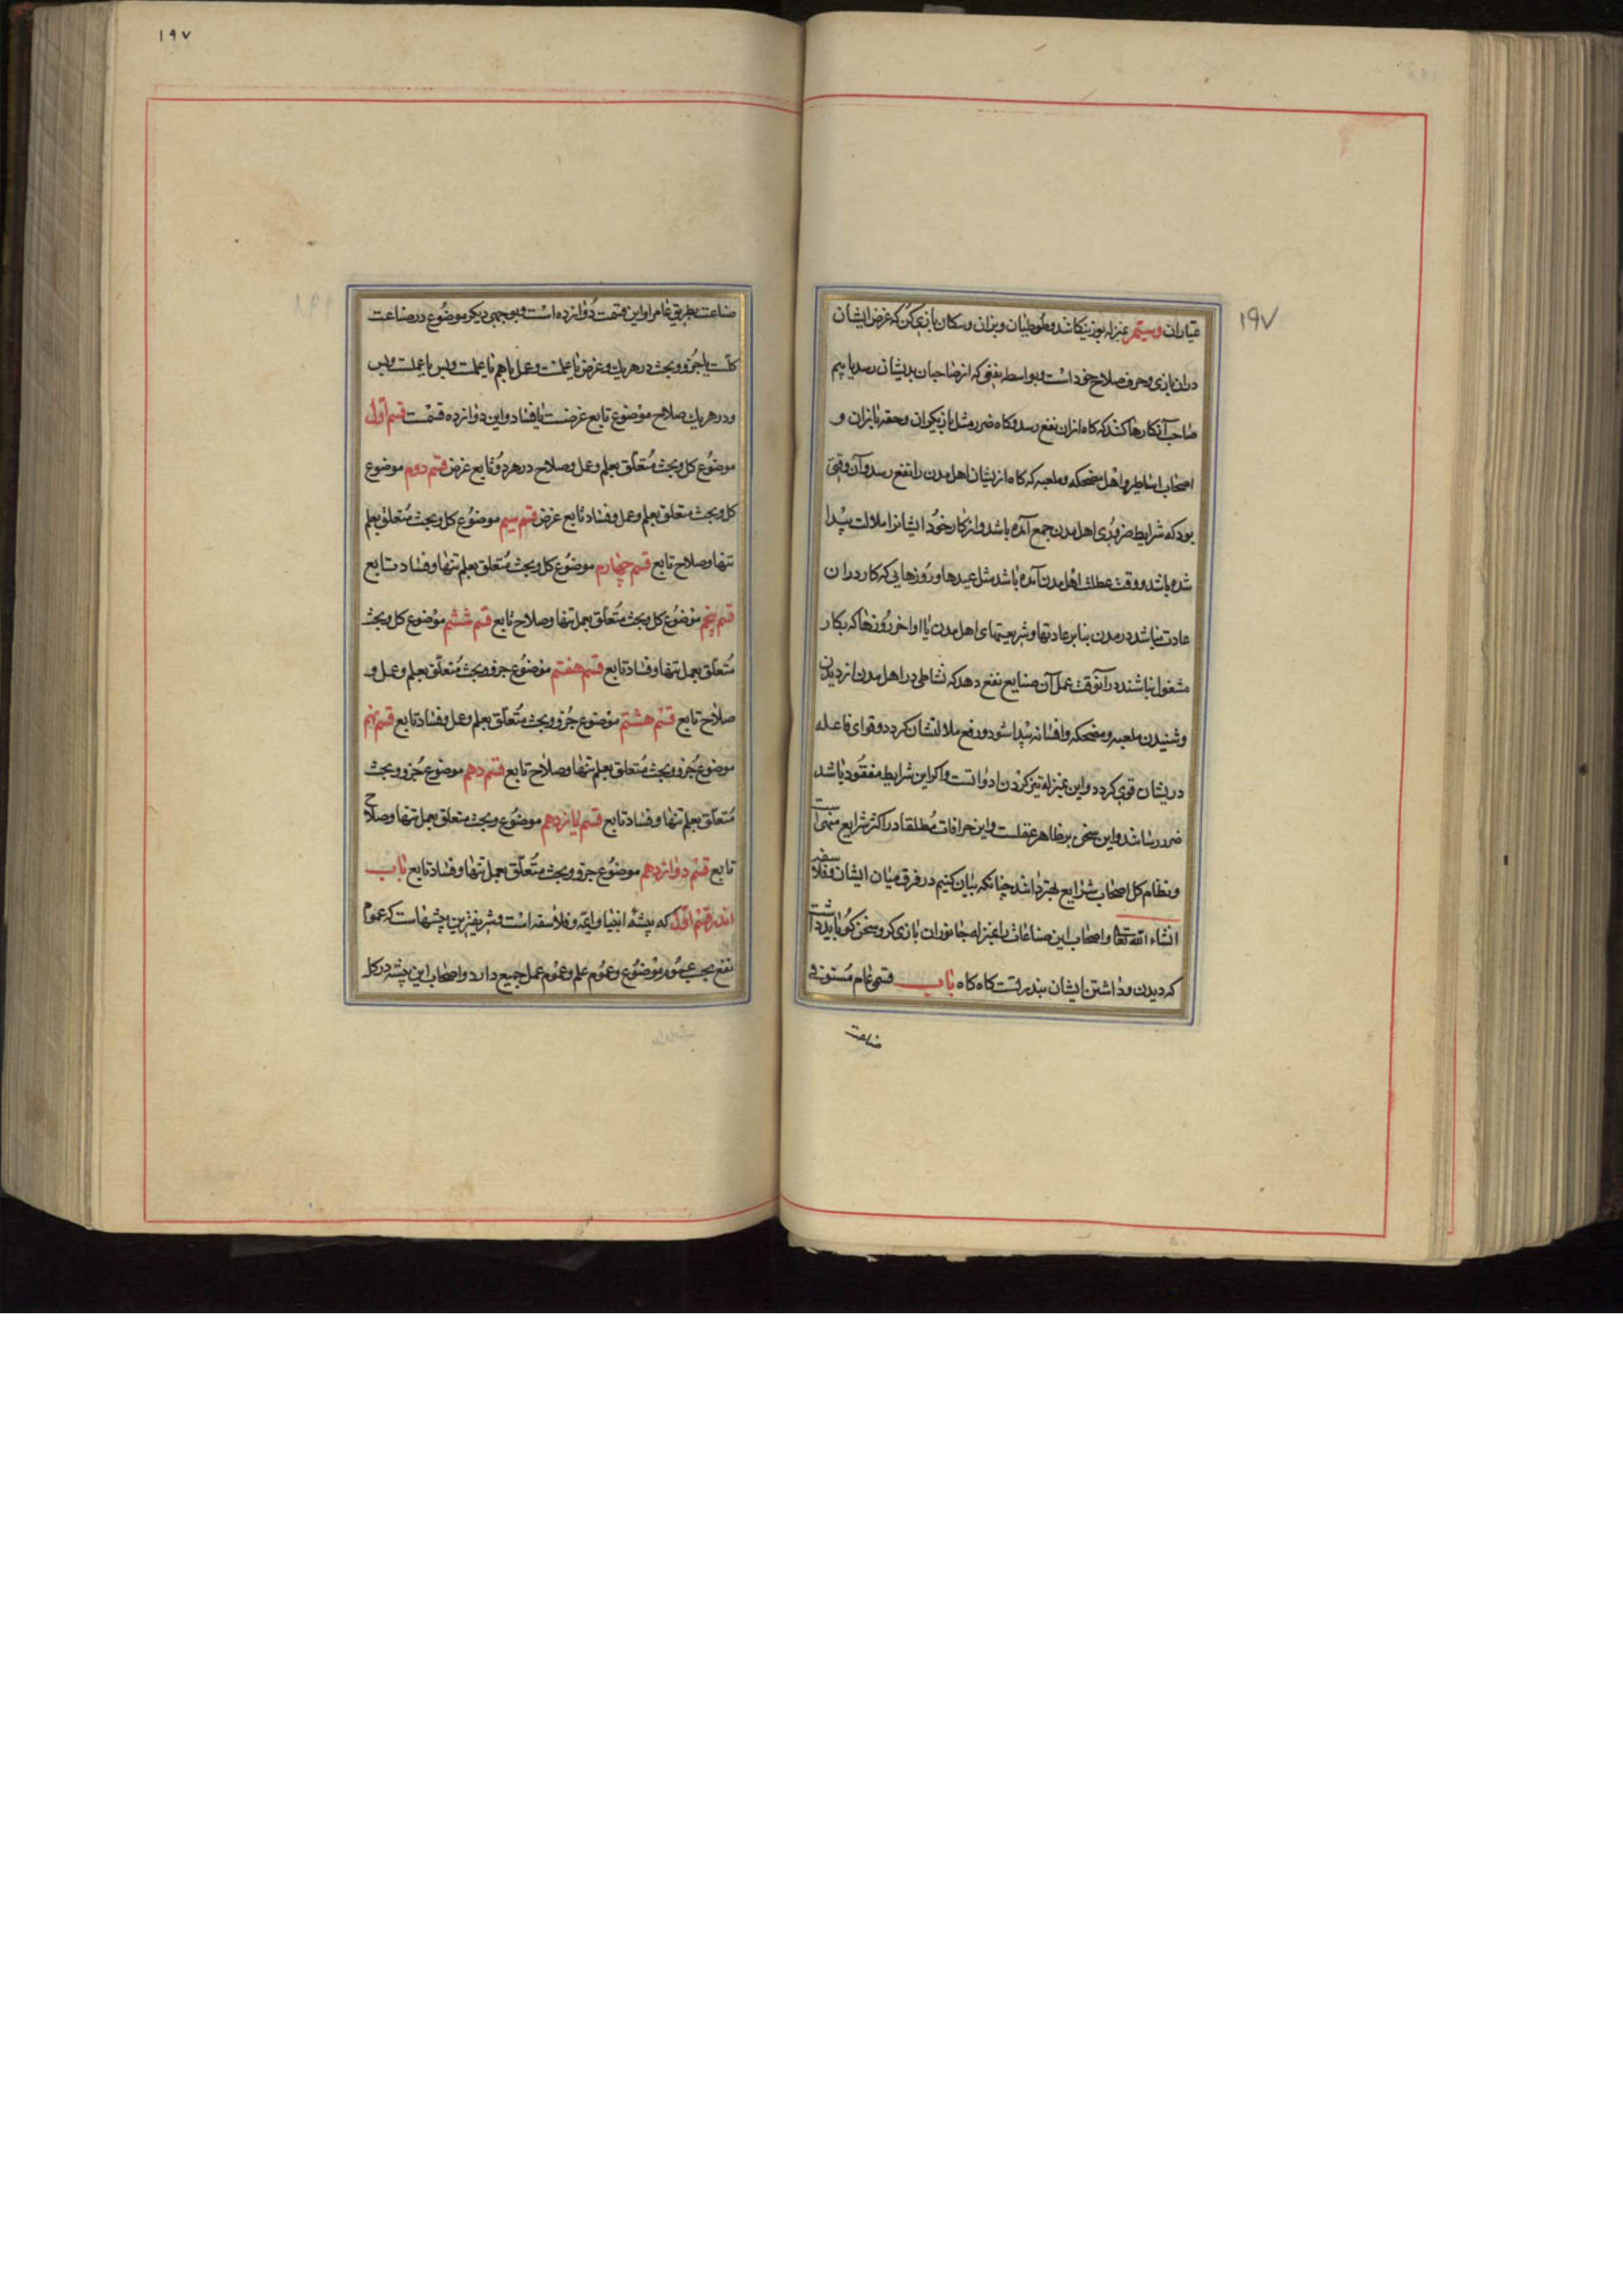 ۱۹۷
عیاران وسیّم بمنزله بوزینکانند و طوطیان و بزان و سکان بازی کن که غرض ایشان
دران بازی و حرف صلاح خود است و بواسطه نفعی که از صاحبان بدیشان رسد یا بیم
صاحب آنکارها کنند که کاه ازان نفع رسد و کاه ضرر مثل بازیکران و حقه بازان و
اصحاب اساطیر و اهل مضحکه و ملعبه که کاه ازیشان اهل مدن را نفع رسد و آن وقتی
بود که شرایط ضروری اهل مدن جمع آمده باشد و از کار خود ایشانرا ملالت پیدا
شده باشد و وقت عطلت اهل مدن آمده باشد مثل عیدها و روزهایی که کار دران
عادت نباشد در مدن بنا بر عادتها و شریعتهای اهل مدن یا اواخر روزها که بکار
مشغول نباشند درآنوقت عمل آن صنایع نفع دهد که نشاطی در اهل مدن از دیدن
و شنیدن ملعبه و مضحکه و افسانه پیدا شود و رفع ملالتشان کردد و قوای فاعله
دریشان قوی کردد و این بمنزله تیز کردن ادواتست و اکر این شرایط مفقود باشد
ضرر رسانند و این سخن بر ظاهر عقلست و این خرافات مطلقا در اکثر شرایع منهی است
و نظام کل اصحاب شرایع بهتر دانند چنانکه بیان کنیم در فرق میان ایشان و فلاسفه
انشاء الله تعالی و اصحاب این صناعات را بمنزله جانوران بازی کر و سخن کوی باید داشت
که دیدن و داشتن ایشان بندرتست کاه کاه باب قسمی عام مستوفی
صناعت
۱۹۷
صناعت بطریق عام را و این قسمت دوازده است و بوجهی دیکر موضوع در صناعت
کلّست یا جزو و بحث در هر یک و غرض یا علمست و عمل باهم یا علمست و بس یا عملست و بس
و در هر یک صلاح موضوع تابع غرضست یا فساد و این دوازده قسمست قسم اوّل
موضوع کل و بحث متعلّق بعلم و عمل و صلاح در هر دو تابع غرض قسم دوم موضوع
کل و بحث متعلق بعلم و عمل و فساد تابع غرض قسم سیم موضوع کل و بحث متعلق بعلم
تنها و صلاح تابع قسم چهارم موضوع کل و بحث متعلق بعلم تنها و فساد تابع
قسم پنجم موضوع کل و بحث متعلّق بعمل تنها و صلاح تابع قسم ششم موضوع کل و بحث
متعلّق بعمل تنها و فساد تابع قسم هفتم موضوع جزو و بحث متعلّق بعلم و عمل و
صلاح تابع قسم هشتم موضوع جزو و بحث متعلّق بعلم و عمل و فساد تابع قسم نهم
موضوع جزو و بحث متعلق بعلم تنها و صلاح تابع قسم دهم موضوع جزو و بحث
متعلّق بعلم تنها و فساد تابع قسم یازدهم موضوع و بحث متعلق بعمل تنها و صلاح
تابع قسم دوازدهم موضوع جزو و بحث متعلّق بعمل تنها و فساد تابع باب
اندر قسم اوّل که پیشه انبیا و ایمه و فلاسفه است و شریفترین پیشهاست که عموم
نفع بحسب عموم موضوع و عموم علم و عموم عمل جمیع دارد و اصحاب این پیشه در کل